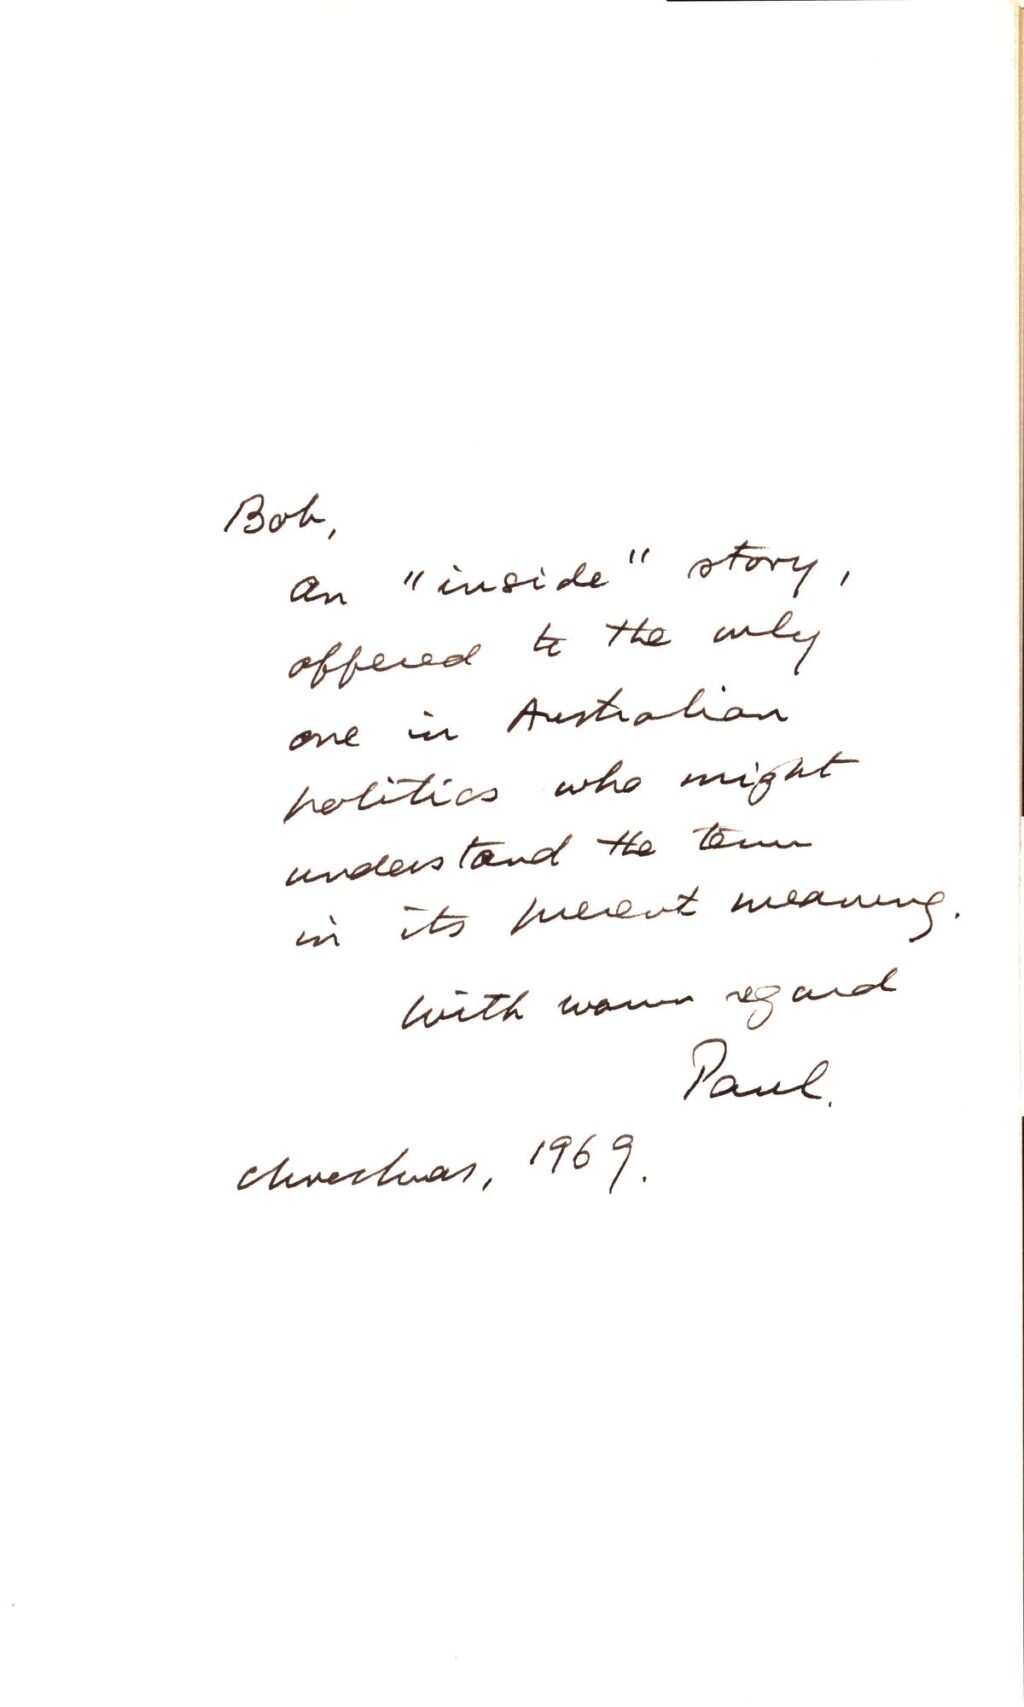 Bob,
an "inside" story,
offered to the only
one in Australian
politics who might
understand the term
in its present meaning.
With warm regard
Paul.
Christmas, 1969.